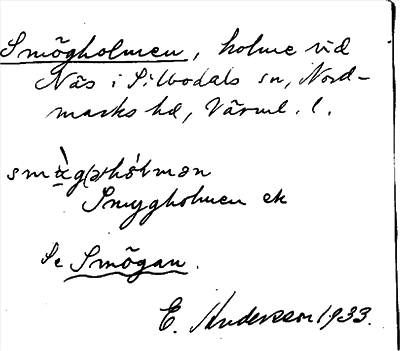 Smögholmen, holme vid
Näs i Silbodals sn, Nord-
marks hd, Värml. l.
Smygholmen ek
Se Smögan.
E. Andersson 1933.